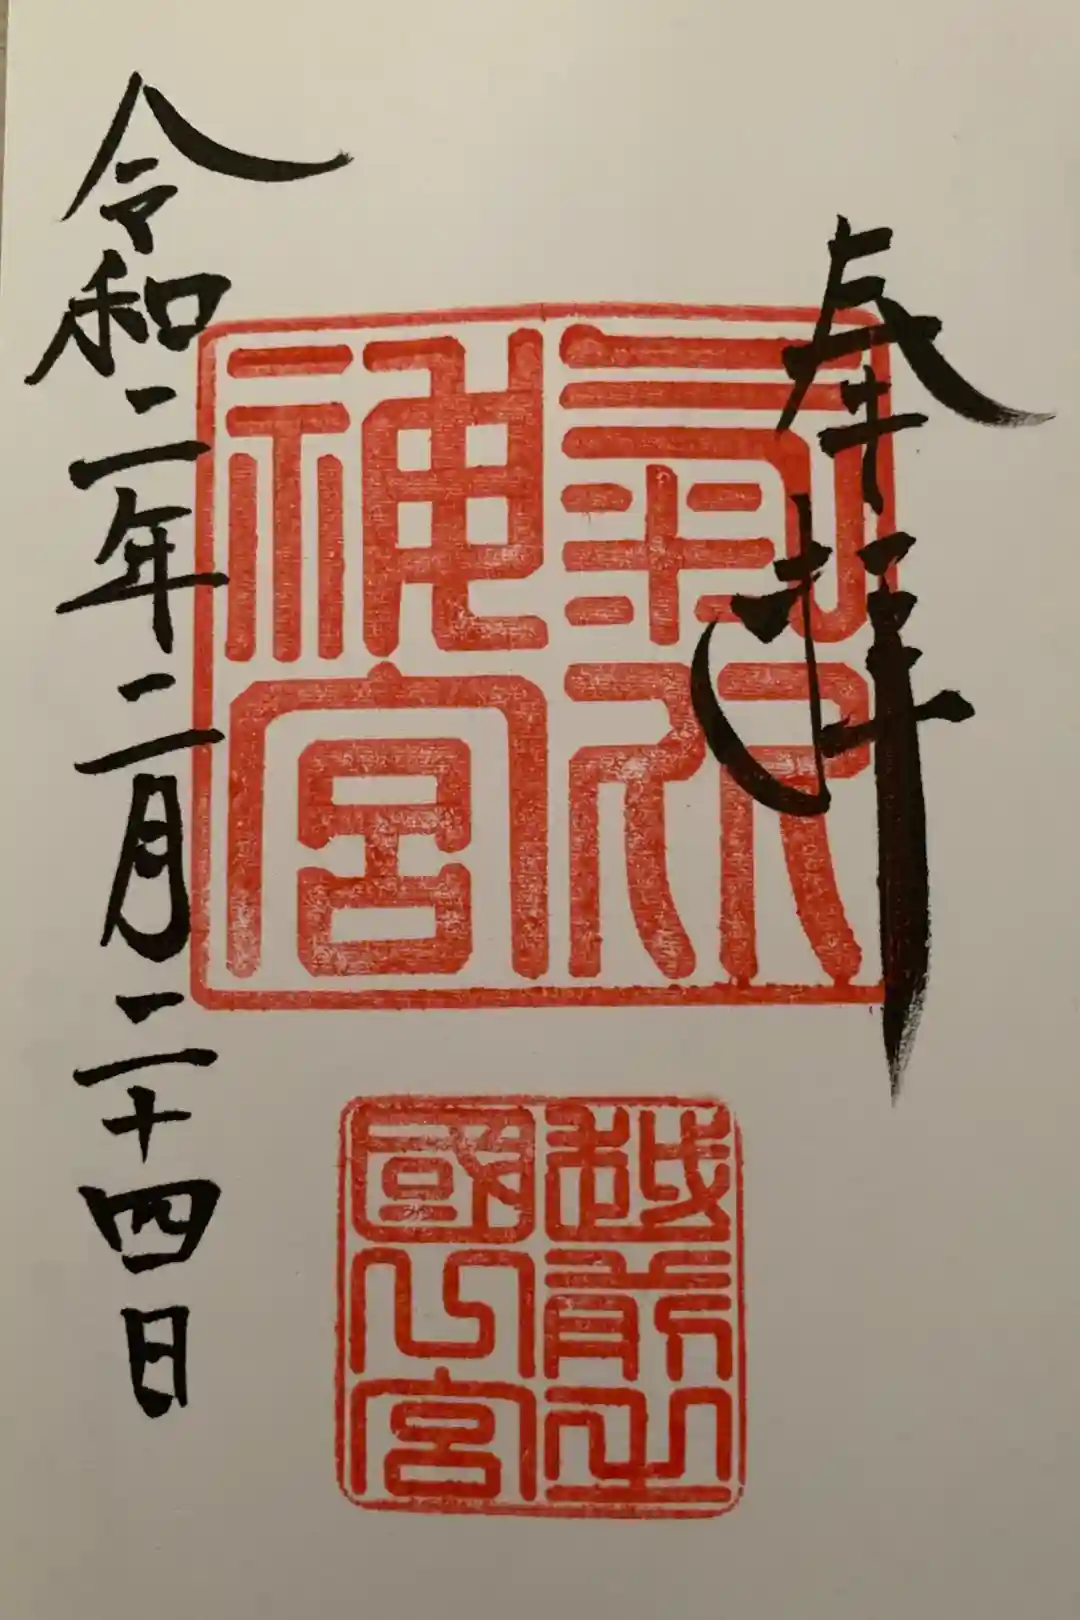 奉拝
氣比
神宮
越前之
國一宮
令和二年二月二十四日